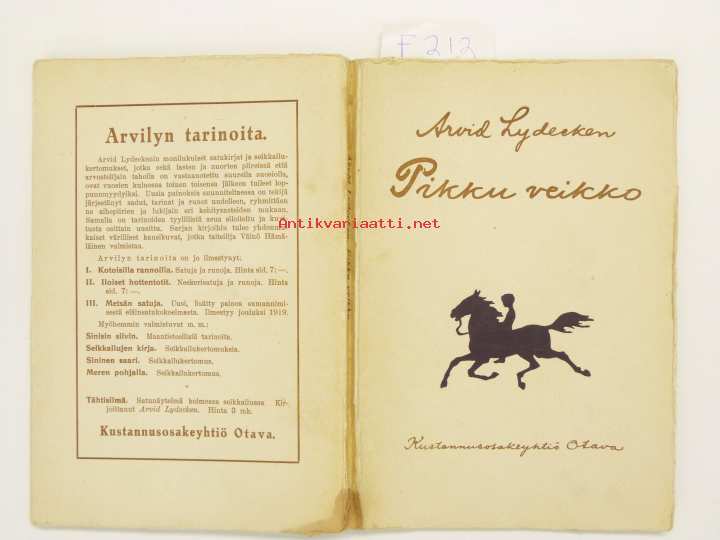 F 212
Arvilyn tarinoita.
Arvid Lydeckenin monilukuiset satukirjat ja seikkailu-
kertomukset, jotka sekä lasten ja nuorten piireissä että
arvostelijain taholla on vastaanotettu suurella suosiolla,
ovat vuosien kuluessa toinen toisensa jälkeen tulleet lop-
puunmyydyiksi. Uusia painoksia suunniteltaessa on tekijä
järjestänyt sadut, tarinat ja runot uudelleen, ryhmittäen
ne aihepiirien ja lukijain eri kehitysasteiden mukaan.
Samalla on tarinoiden tyylillistä asua siloiteltu ja
osittain uusittu. Sarjan kirjoihin tulee
kaiset värilliset kansikuvat, jotka taiteilija Väinö Hämä-
läinen valmistaa.
Arvilyn tarinoita on jo ilmestynyt:
I. Kotoisilla rannoilla. Satuja ja runoja. Hinta sid. 7: —.
II. Iloiset hottentotit. Neekerisatuja ja runoja. Hinta
sid. 7: —.
III. Metsän satuja. Uusi, lisätty painos samannimi-
sestä eläinsatukokoelmasta. Ilmestyy jouluksi 1919.
Myöhemmin valmistuvat m. m.:
Sinisin siivin. Maantieteellisiä tarinoita.
Seikkailujen kirja. Seikkailukertomuksia.
Sininen saari. Seikkailukertomus.
Meren pohjalla. Seikkailukertomus.
Tähtisilmä. Satunäytelmä kolmessa seikkailussa Kir-
joittanut Arvid Lydecken. Hinta 3 mk.
Kustannusosakeyhtiö Otava.
Arvid Lydecken
Pikku veikko
Antikvariaatti.net
Kustannusosakeyhtiö Otava